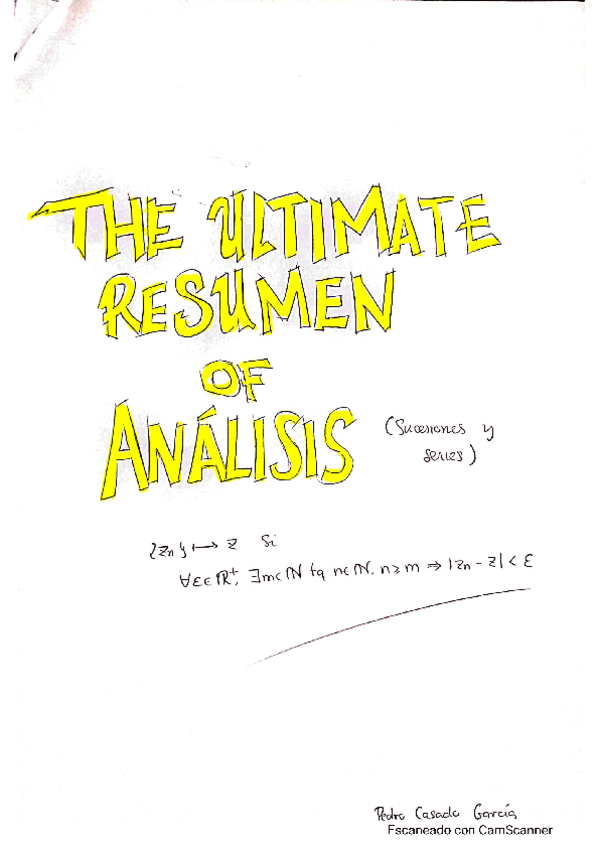 THE ULTIMATE
RESUMEN
OF
ANÁLISIS
(Sucesiones y
series)
{zn} ↦ z si
∀ε∈ℝ⁺, ∃m∈ℕ tq n∈ℕ, n≥m ⇒ |zn - z| < ε
Pedro Casado García
Escaneado con CamScanner